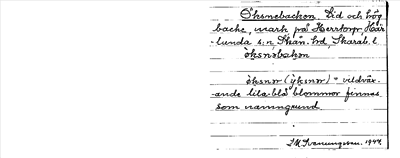 Öksnebacken. Lid och hög
backe, mark på Herrtorp, Här-
lunda s:n, Skån. hd, Skarab. l.
öksnəbakən
öksnər (yksnər) = vildväx-
ande lila-blå blommor finnas
som namngrund.
1947